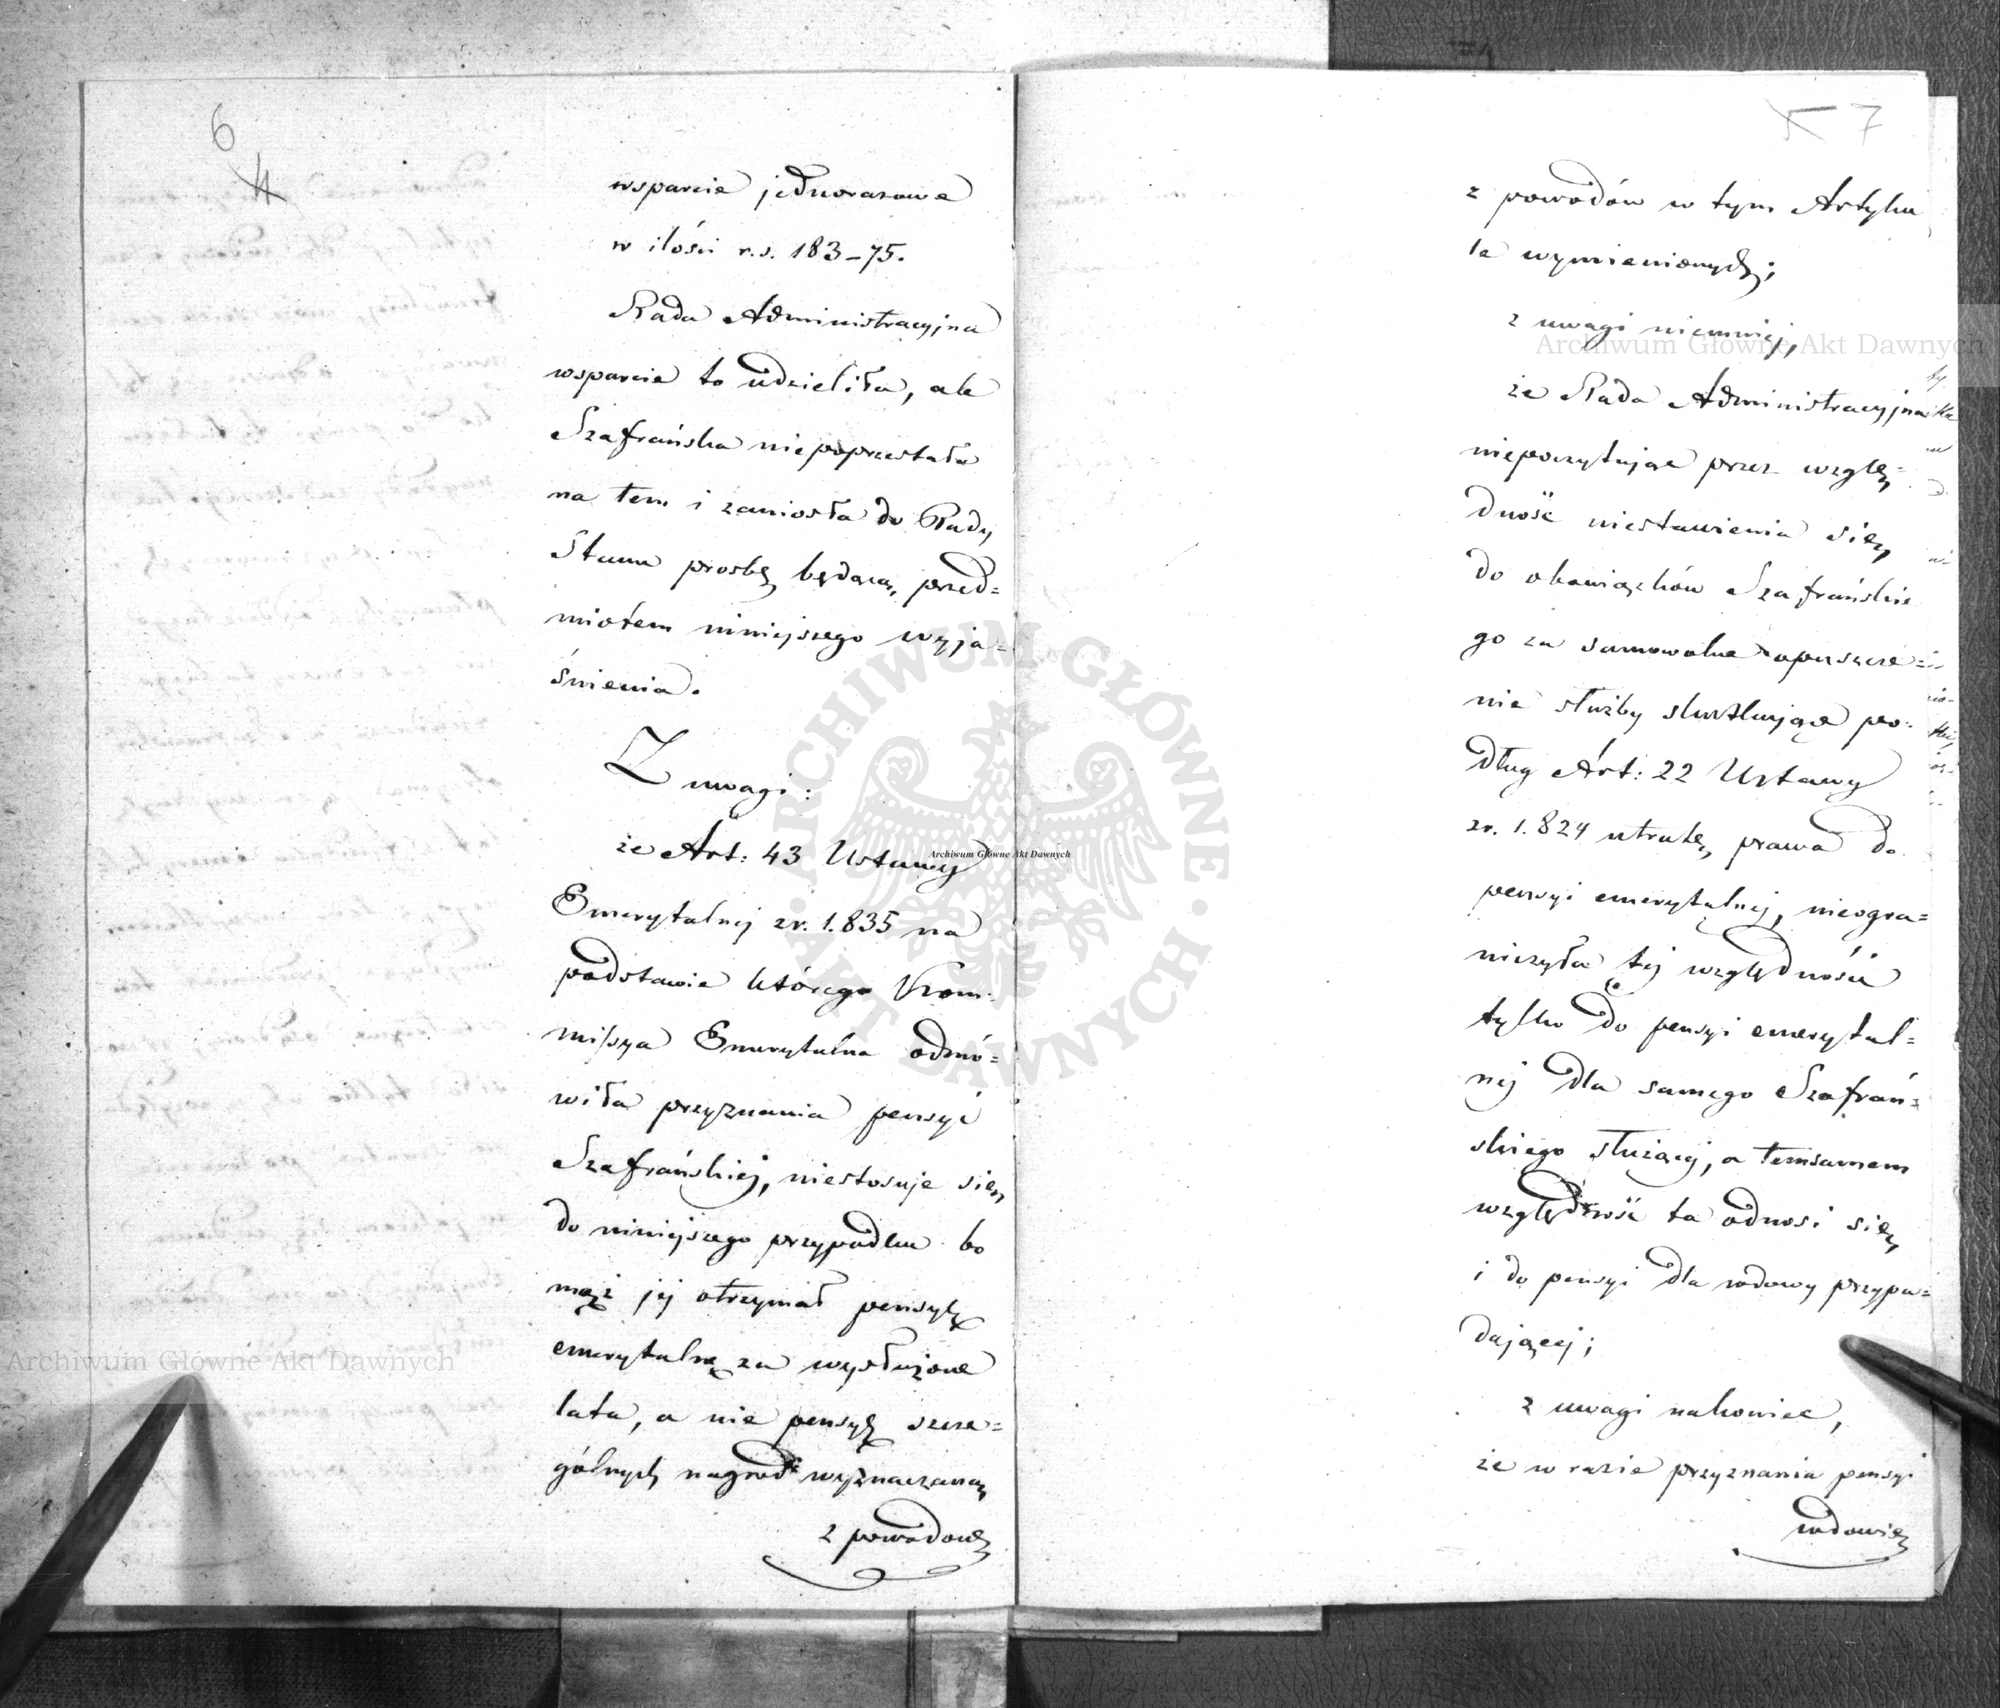 6
4
wsparcie jednorazowe
w ilości r.s. 183-75.
Rada Administracyjna
wsparcie to udzieliła, ale
Szafrańska niepoprzestała
na tem i zaniosła do Rady
Stanu prosbę będącą przed=
miotem niniejszego wyja=
śnienia.
Z uwagi:
że Art: 43 Ustawy
Emerytalnej zr. 1.835 na
podstawie którego Kom=
missya Emerytalna odmó=
wiła przyznania pensyi
Szafrańskiej, niestosuje się
do niniejszego przypadku bo
mąż jej otrzymał pensyę
emerytalną za wysłużone
lata, a nie pensyę szcze=
gólnych nagród wyznaczaną
z powodów
5 7
z powodów w tym Artyku
le wymienionych;
z uwagi niemniej,
że Rada Administracyjna
niepoczytując przez wzglę=
dność niestawienia się
do obowiązków Szafrańskie
go za samowolne opuszcze=
nie służby skutkujące po=
dług Art: 22 Ustawy
zr. 1.824 utratę prawa do
pensyi emerytalnej, nieogra=
niczyła tej względności
tylko do pensyi emerytal=
nej dla samego Szafrań=
skiego służącej, a temsamem
względność ta odnosi się
i do pensyi dla wdowy przypa=
dającej;
z uwagi nakoniec,
że w razie przyznania pensyi
wdowie
Archiwum Główne Akt Dawnych
Archiwum Główne Akt Dawnych
Archiwum Główne Akt Dawnych
ARCHIWUM GŁÓWNE
AKT DAWNYCH